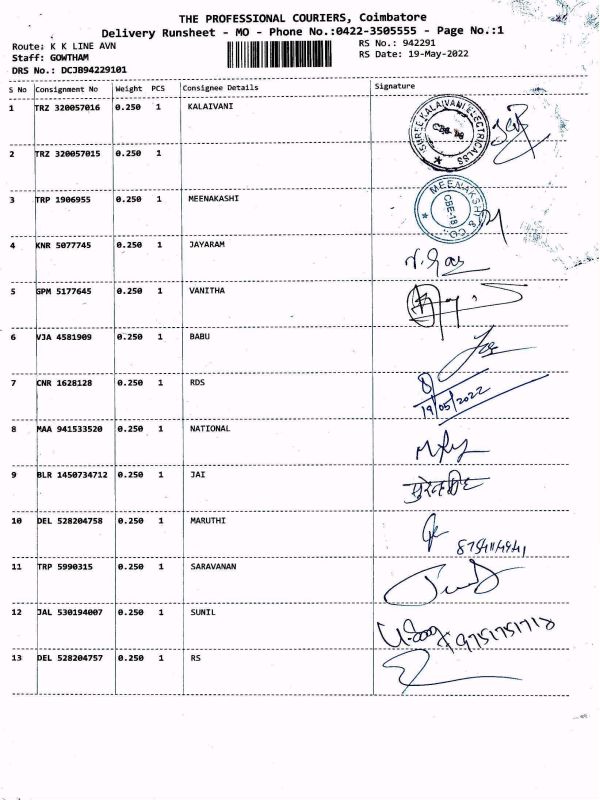 THE PROFESSIONAL COURIERS, Coimbatore
Delivery Runsheet - MO - Phone No.:0422-3505555 - Page No.:1
Route: K K LINE AVN
RS No.: 942291
Staff: GOWTHAM
RS Date: 19-May-2022
DRS No.: DCJB94229101
S No Consignment No Weight PCS Consignee Details Signature
1 TRZ 320057016 0.250 1 KALAIVANI
SHREE KALAIVANI ELECTRICALSS
2 TRZ 320057015 0.250 1
3 TRP 1906955 0.250 1 MEENAKASHI
MEENAKSHI & CO CBE-18
4 KNR 5077745 0.250 1 JAYARAM
5 GPM 5177645 0.250 1 VANITHA
6 VJA 4581909 0.250 1 BABU
7 CNR 1628128 0.250 1 RDS
19/05/2022
8 MAA 941533520 0.250 1 NATIONAL
9 BLR 1450734712 0.250 1 JAI
10 DEL 528204758 0.250 1 MARUTHI
11 TRP 5990315 0.250 1 SARAVANAN
12 JAL 530194007 0.250 1 SUNIL
9751751718
13 DEL 528204757 0.250 1 RS